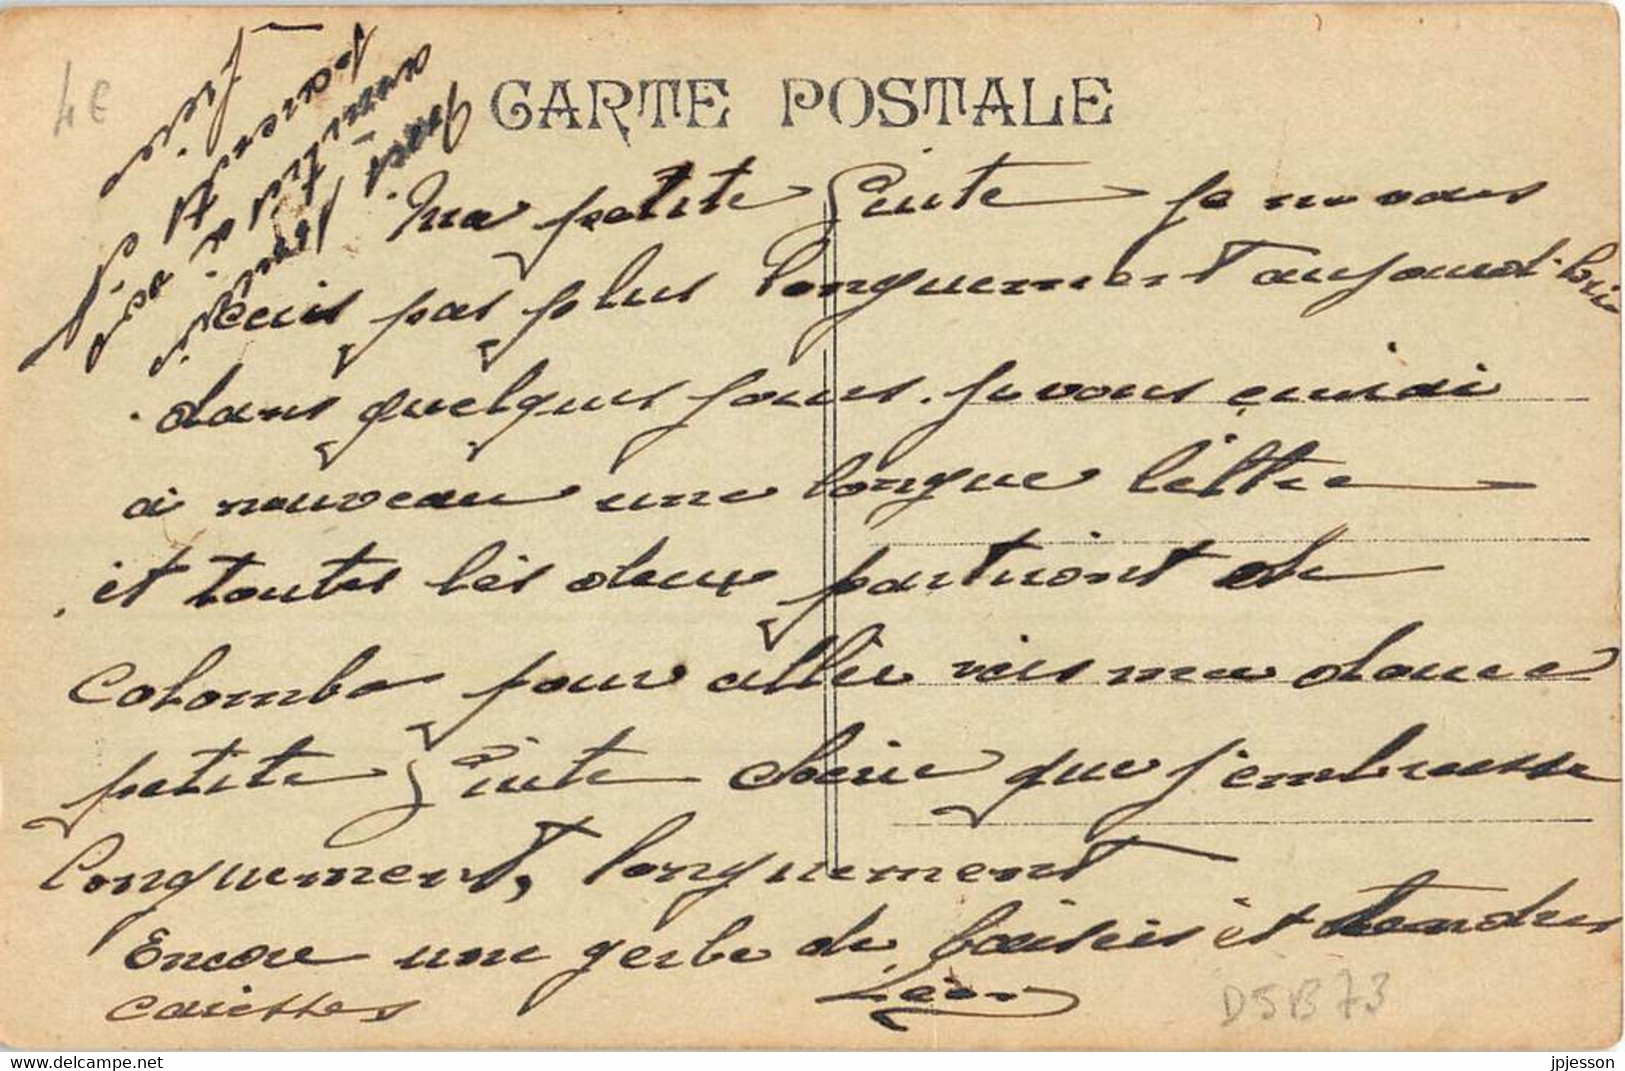 4€
CARTE POSTALE
Ma petite je ne vous
écris pas plus longuement aujourd'hui
dans quelques jours. je vous écrirai
à nouveau une longue lettre
et toutes les deux partiront de
Colombo pour aller vers ma douce
petite chérie que j'embrasse
longuement, longuement
Encore une gerbe de baisers et tendres
caresses Léon
D5B73
delcampe.net
jpjesson